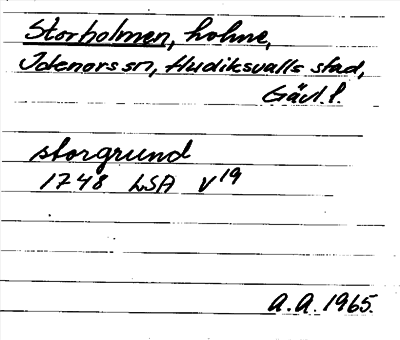 Storholmen, holme,
Idenors sn, Hudiksvalls stad,
Gävl.l.
storgrund
1748 LSA V19
A.A. 1965.